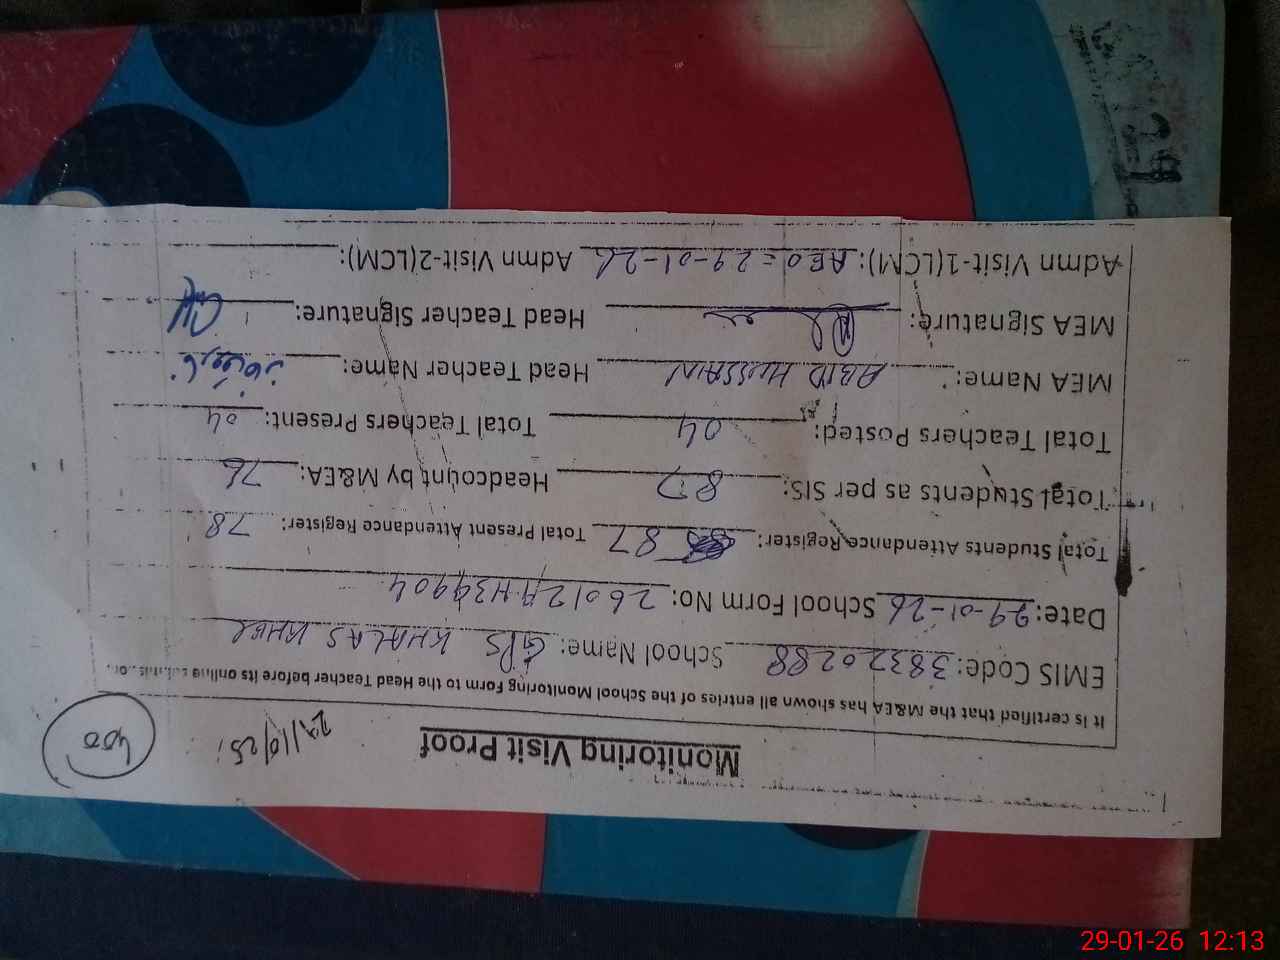 Monitoring Visit Proof
29/10/25
400
It is certified that the M&EA has shown all entries of the School Monitoring Form to the Head Teacher before its online
EMIS Code: 38320288 School Name: GPS KHALAS KHEL
Date: 29-01-26 School Form No: 26012AH39904
Total Students Attendance Register: 87 Total Present Attendance Register: 78
Total Students as per SIS: 87 Headcount by M&EA: 76
Total Teachers Posted: 04 Total Teachers Present: 04
MEA Name: ABID HUSSAIN Head Teacher Name:
MEA Signature: Head Teacher Signature:
Admn Visit-1(LCM): AEO = 29-01-26 Admn Visit-2(LCM):
29-01-26 12:13